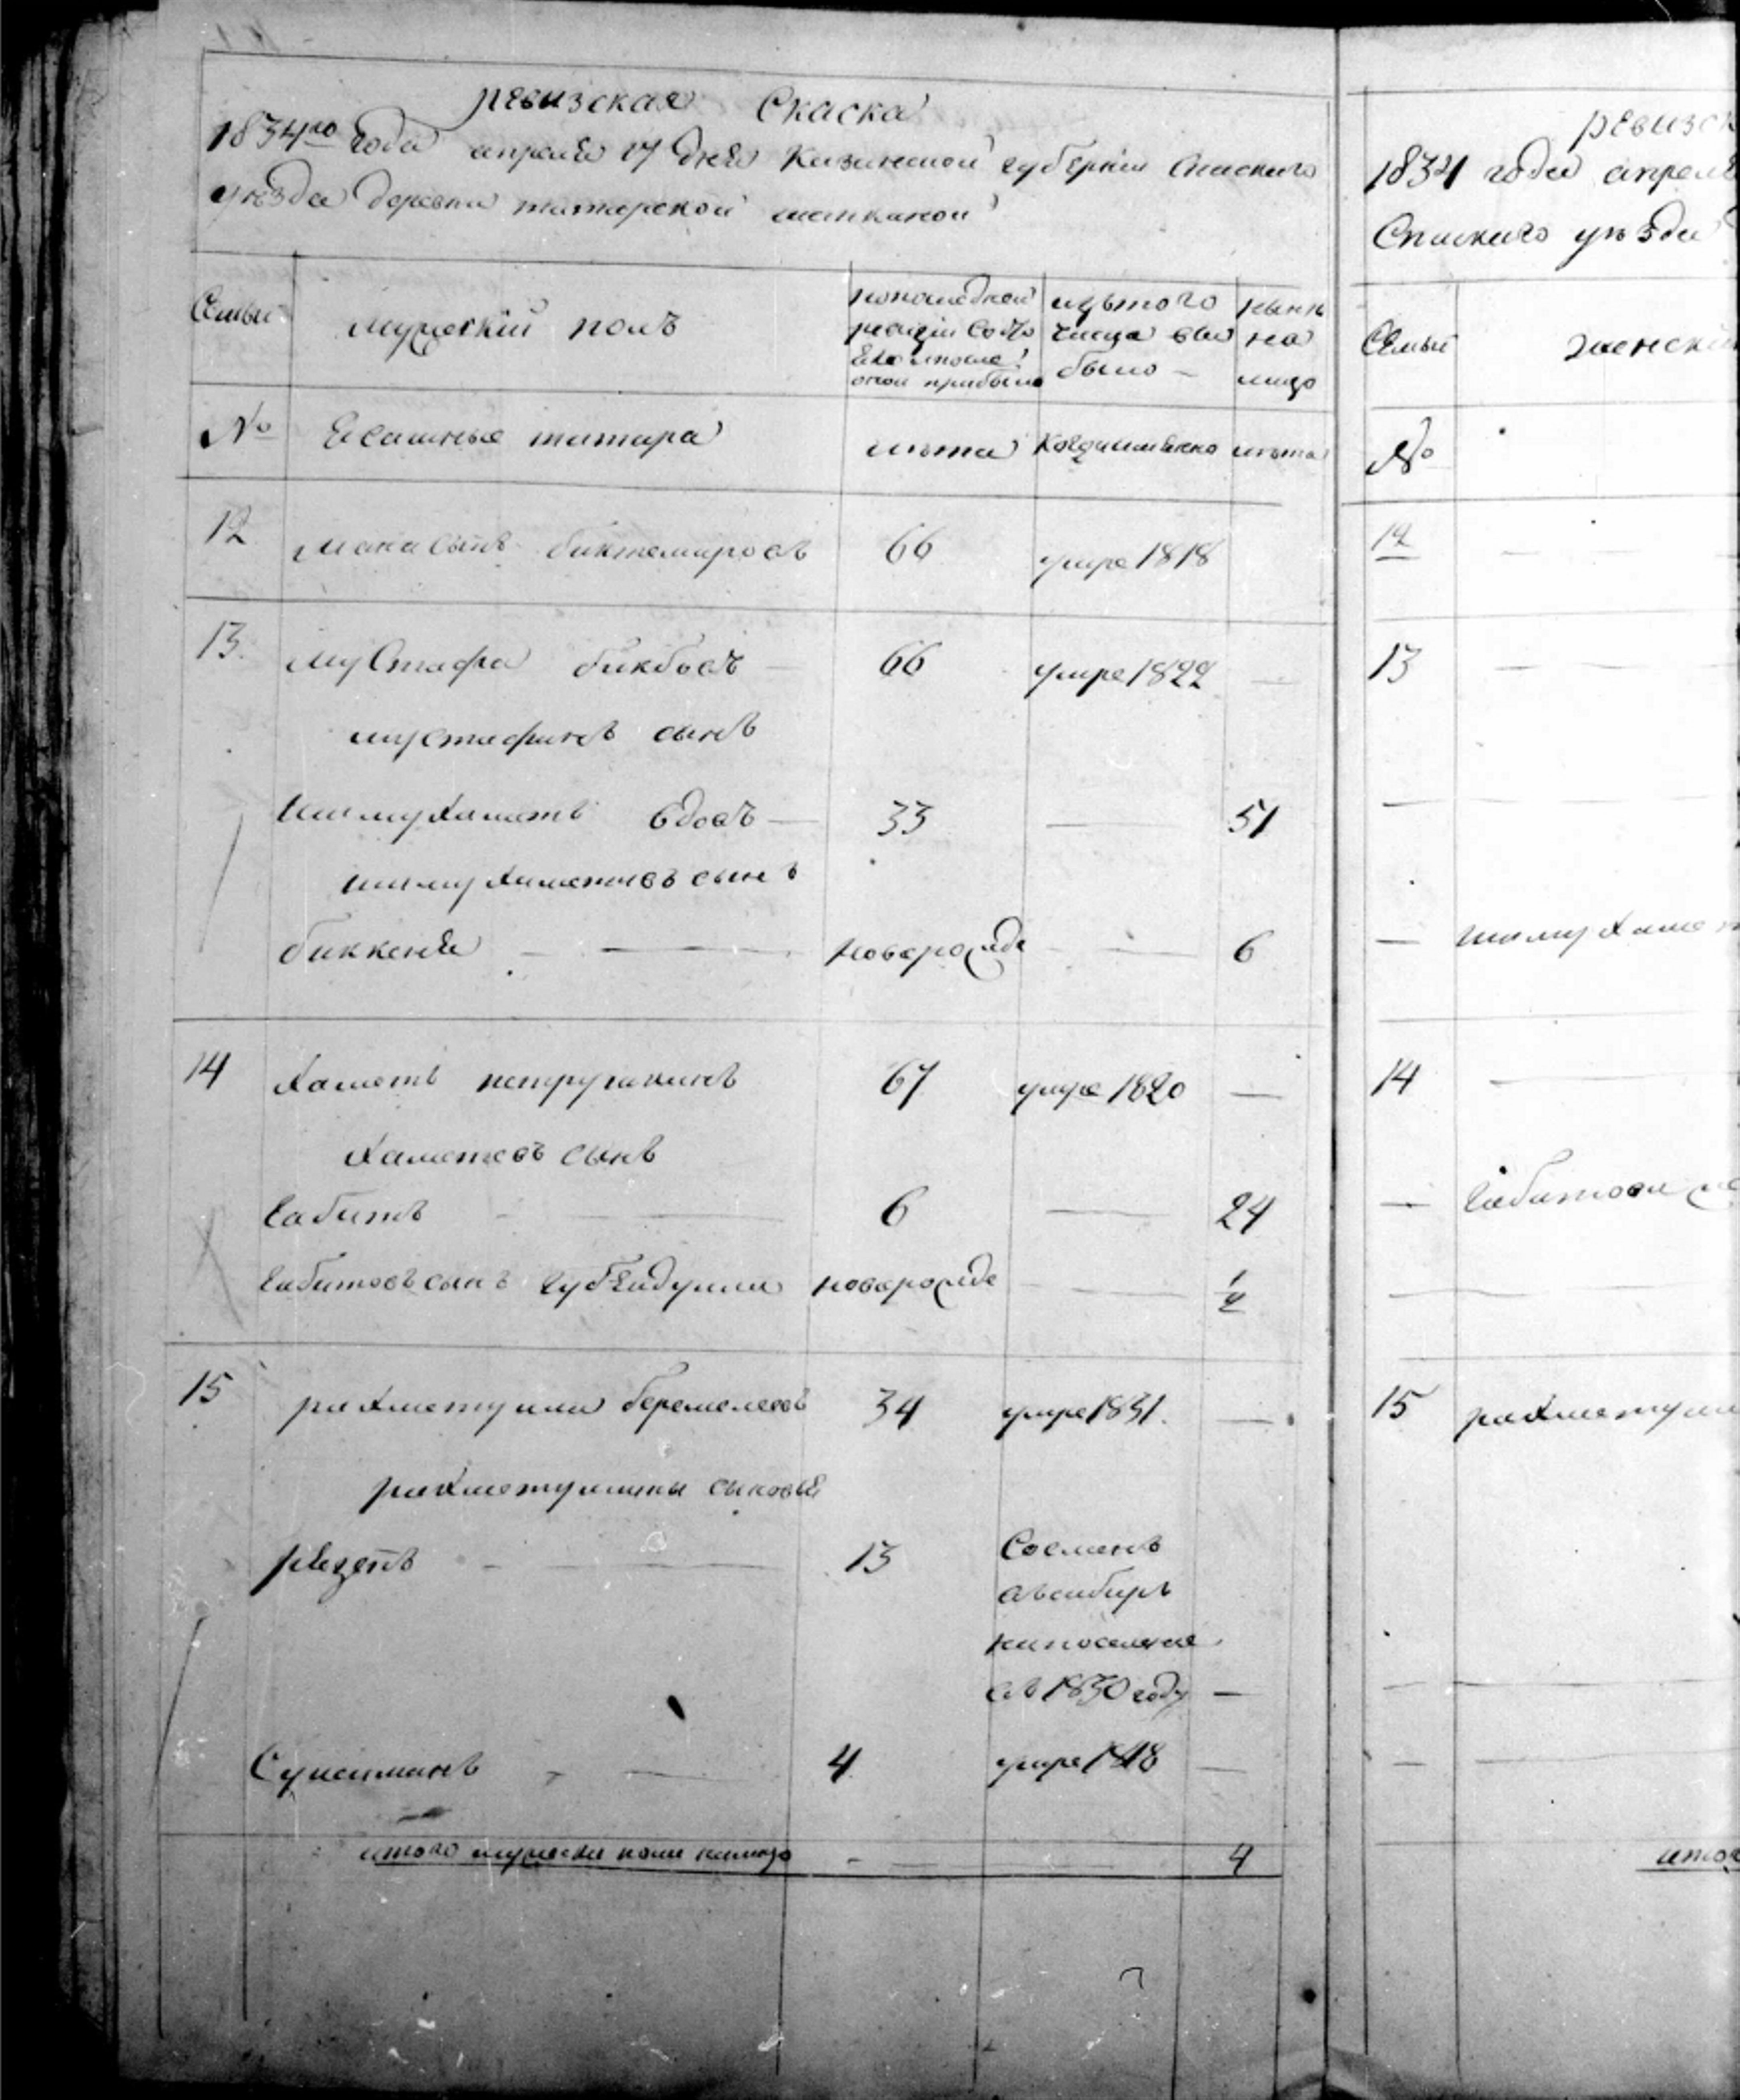 ревизская Скаска
1834го года апреля 17 дня Казанской губернии Спаского
уезда деревни татарской
Семьи
мужеский полъ
попоследней
ревизiи Состо
яло и после
оной прибыло
изътого
числа вы
было
ныне
на
лицо
№
Ясашные татара
лета
Когда именно
лета
12
биктемировъ
66
умре 1818
13
мустафа бикбовъ
66
умре 1822
мустафинъ сынъ
ишмухаметь вдовъ
33
51
ишмухаметовъ сынъ
биккеня
новорожде
6
14
Хаметь
67
умре 1820
Хаметовъ сынъ
Габитъ
6
24
Габитовъ сынъ Губейдулла
новорожде
1/2
15
рахметулла
34
умре 1831
рахметуллины сыновья
13
Сосланъ
въсибирь
напоселение
въ 1830 году
Сулейманъ
4
умре 1818
итого мужеска пола налицо
4
ревизск
1834 года апреля
Спаскаго уезда
Семьи
женски
№
12
13
ишмухамет
14
Габитова же
15
рахметулл
итог